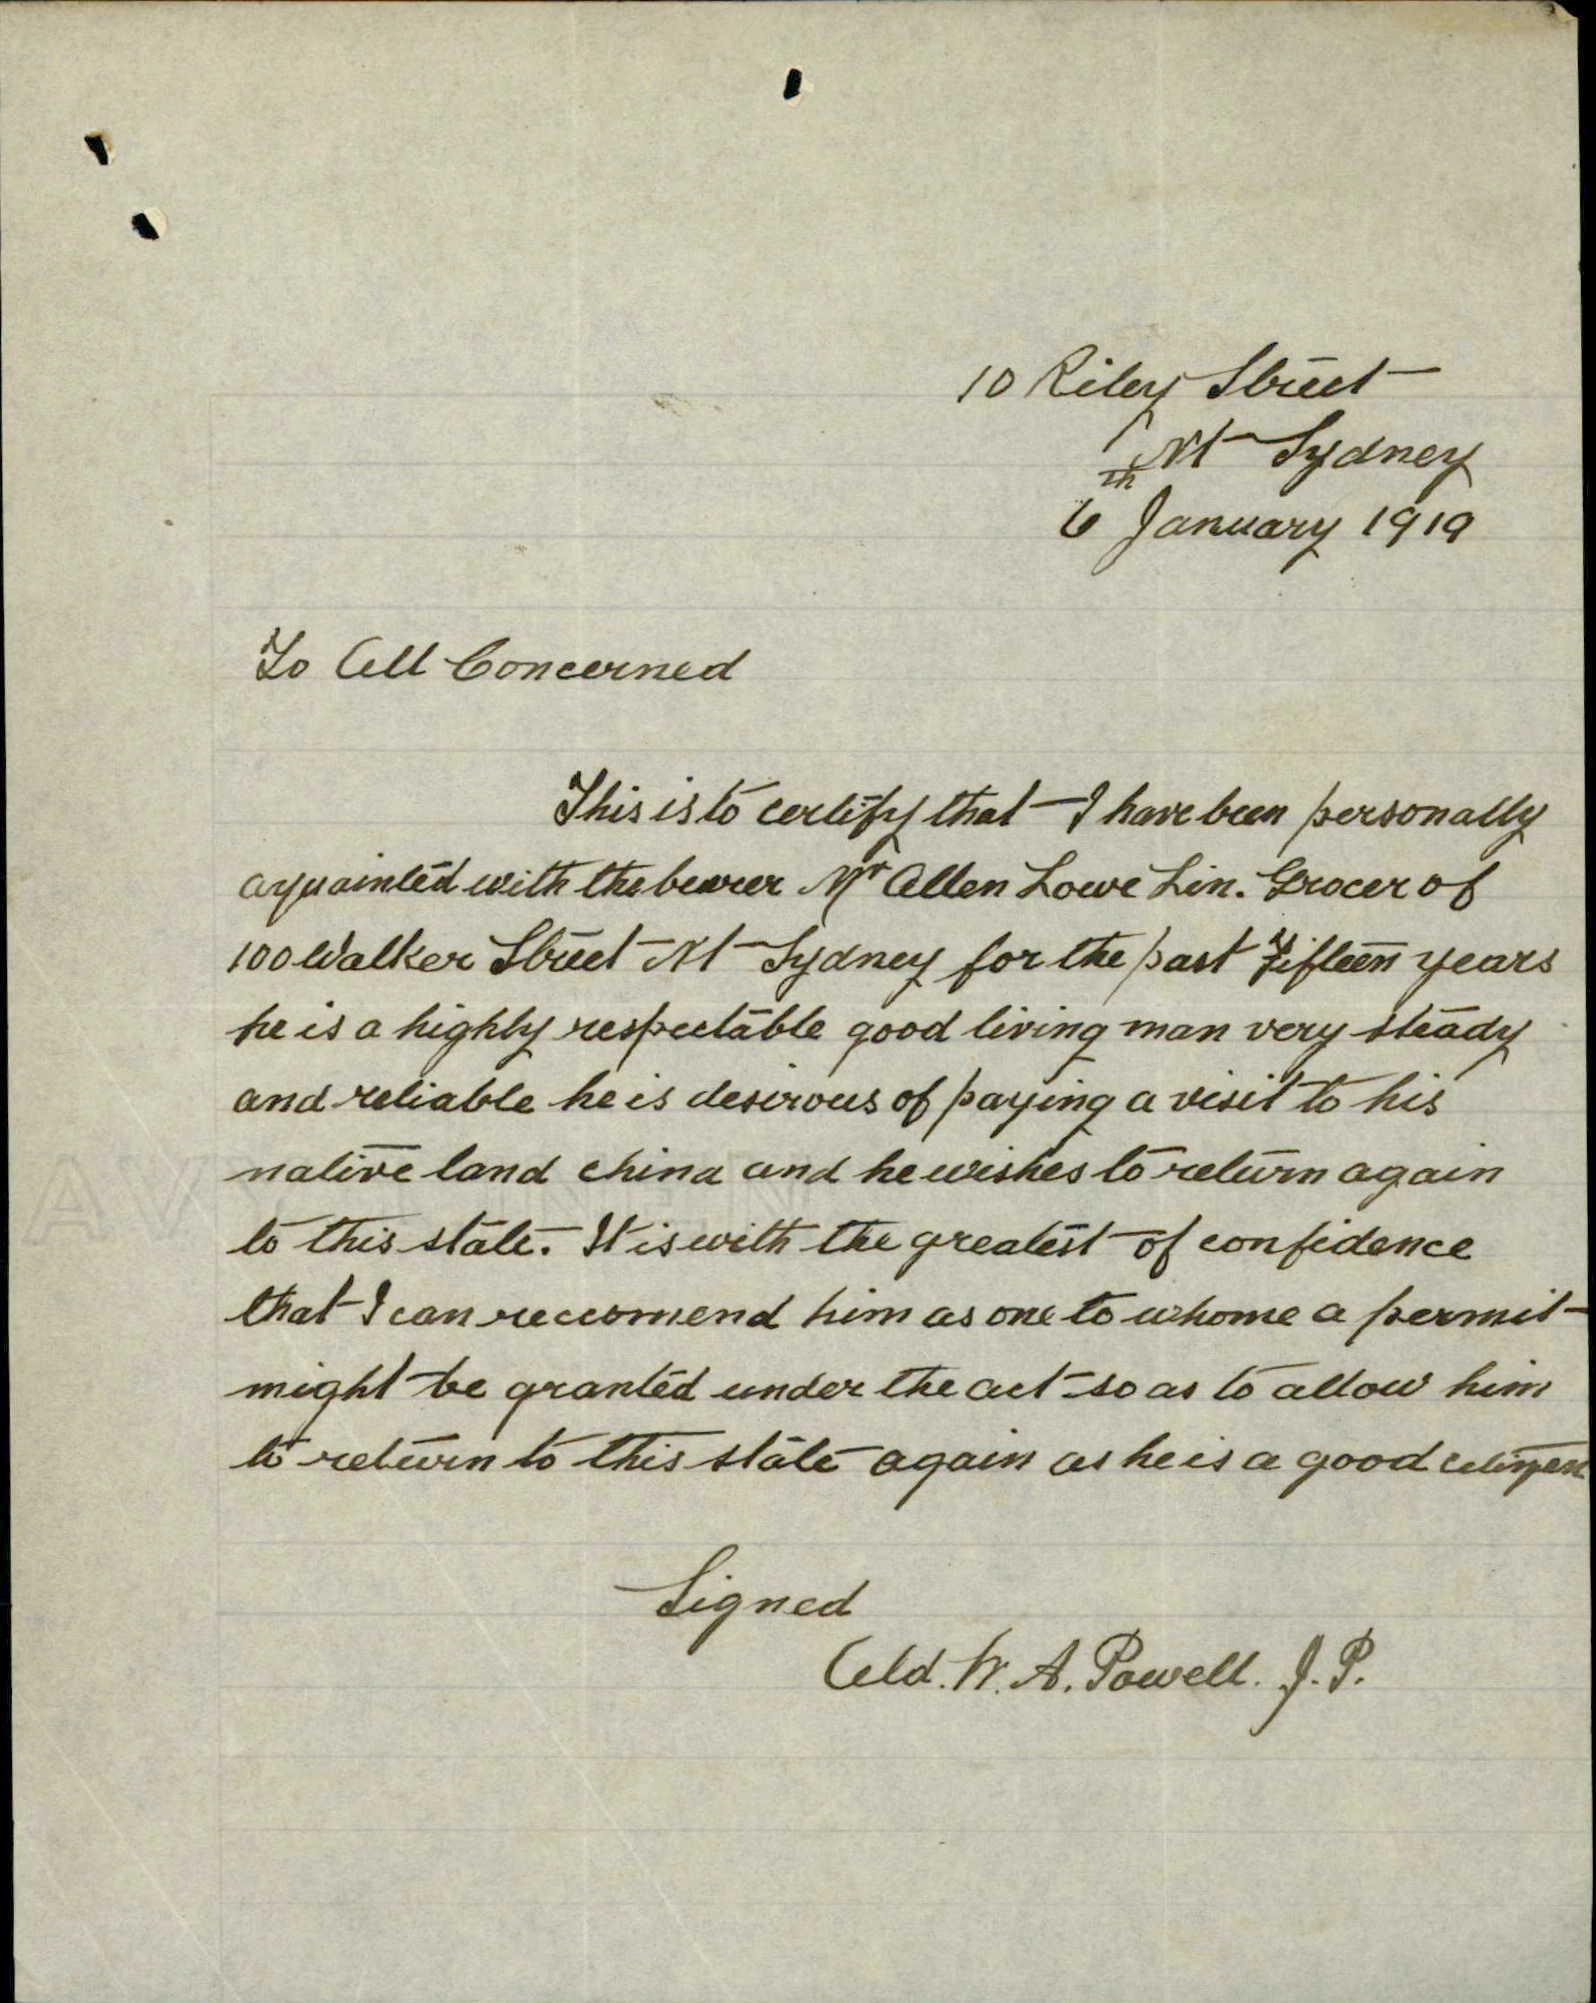 10 Riley Street
Nt Sydney
6th January 1919
To All Concerned
This is to certify that I have been personally
aquainted with the bearer Mr Allen Lowe Lin. Grocer of
100 Walker Street Nt Sydney for the past Fifteen years
he is a highly respectable good living man very steady
and reliable he is desirous of paying a visit to his
native land china and he wishes to return again
to this state. It is with the greatest of confidence
that I can reccomend him as one to whome a permit
might be granted under the act so as to allow him
to return to this state again as he is a good citizen
Signed
Ald. W. A. Powell. J. P.